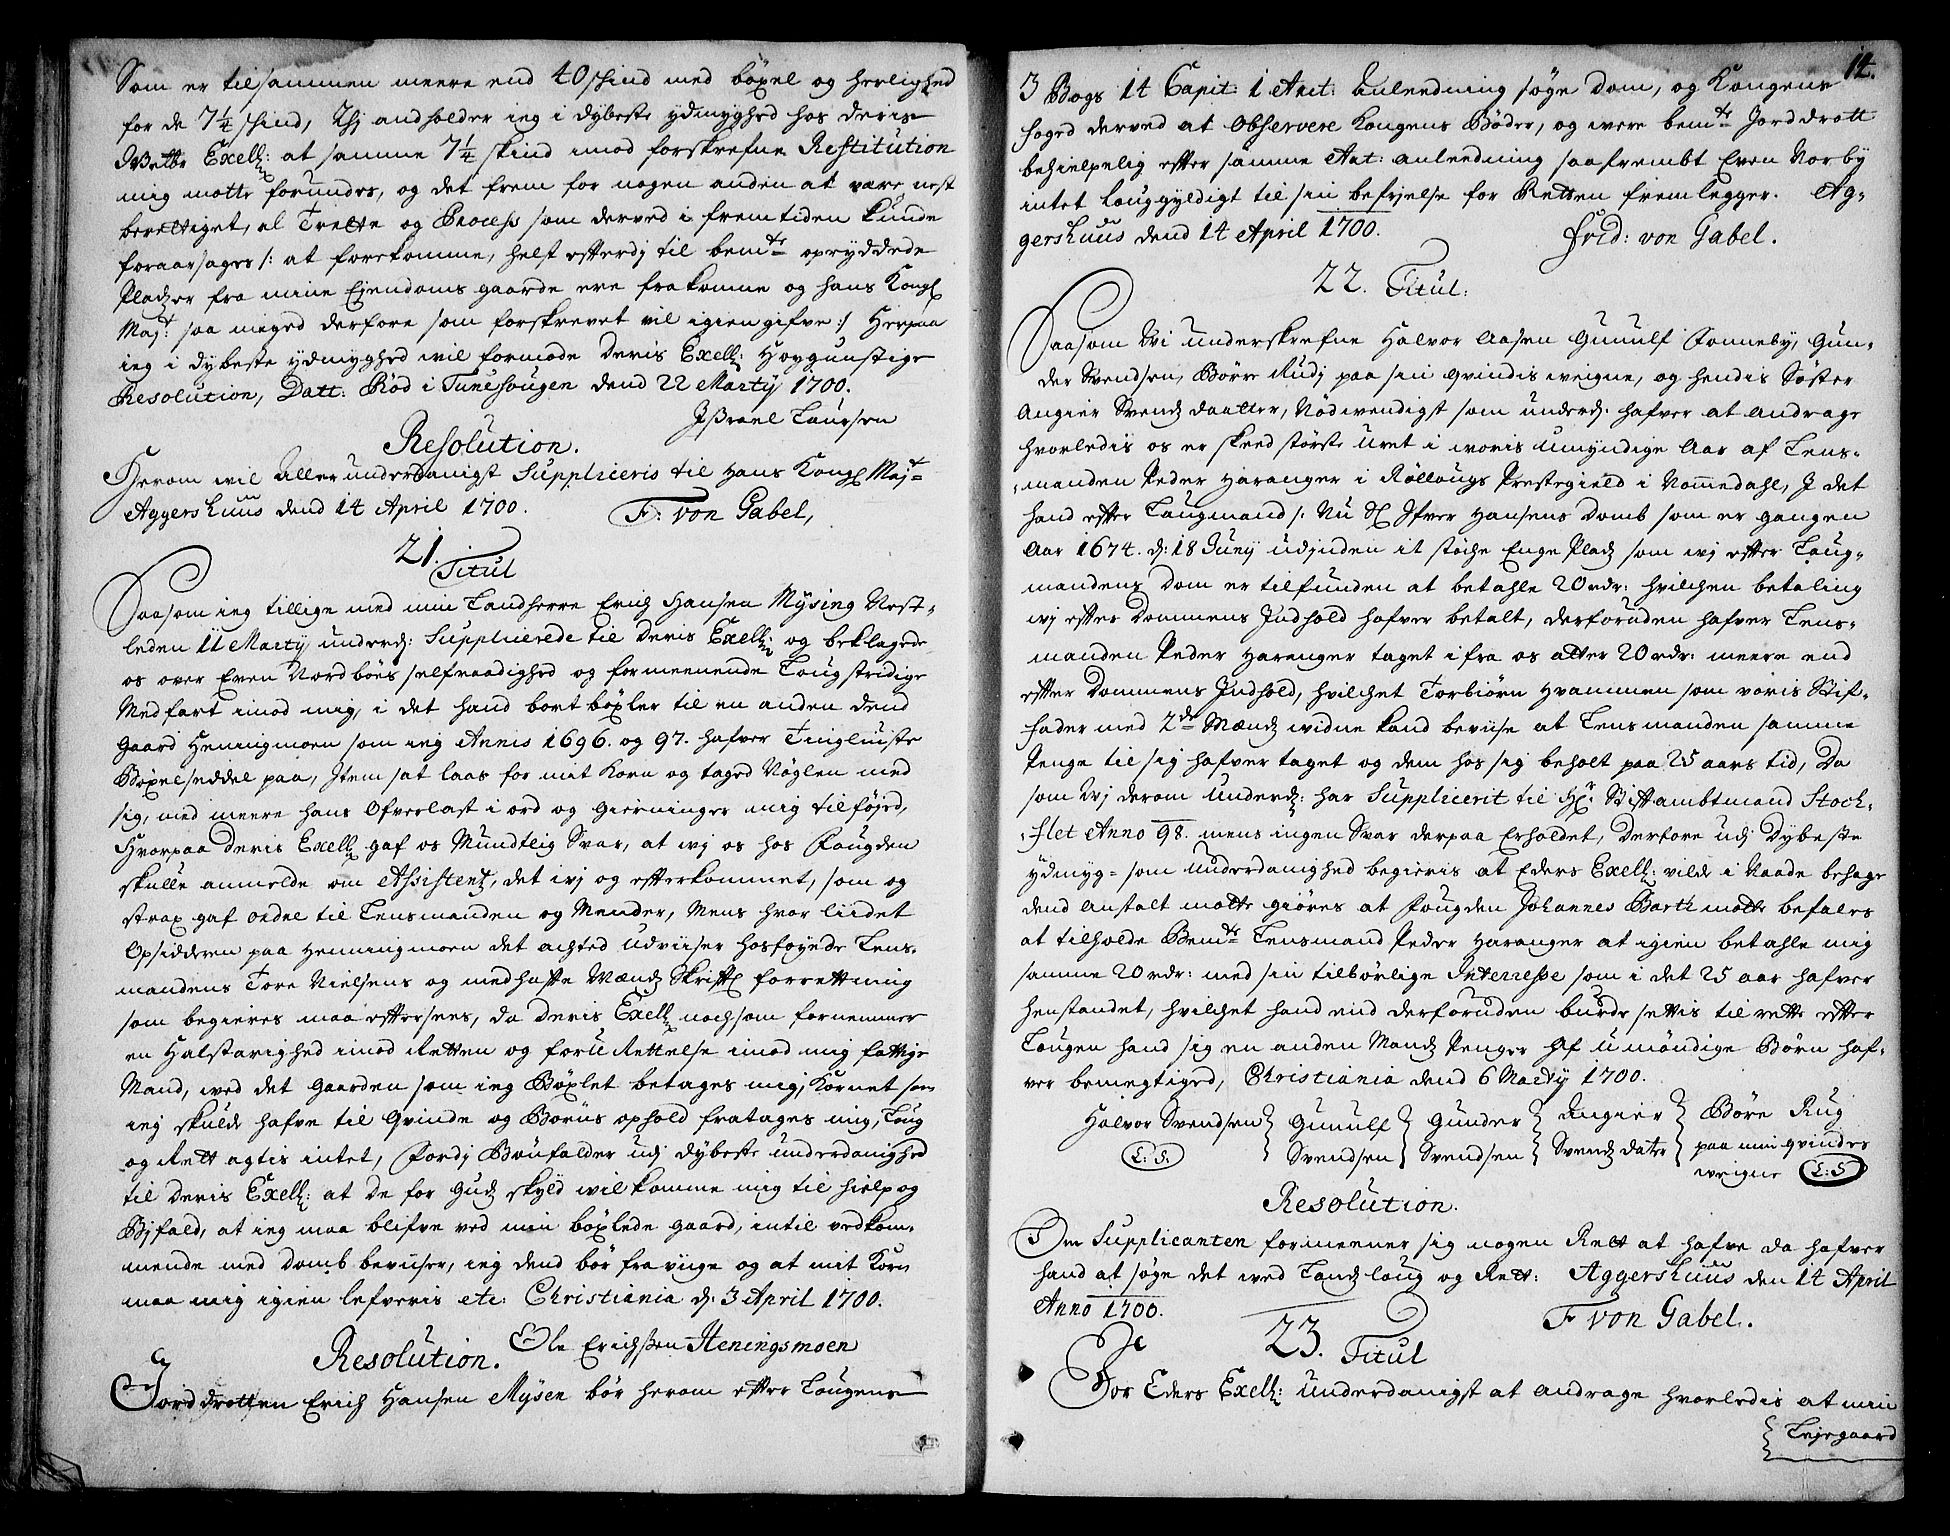 Som er tilsammen meere end 40 skind med böxel og herlighed
for de 7¼ skind, Thj andholder ieg i dybeste ydmyghed hos deris
Exell: at samme 7¼ skind imod forskrefne Restitution
mig motte forundes, og det frem for nogen anden at være nest
berettiget, al Trette og Process som derved i fremtiden kunde
foraarsages /: at forekomme, helst efterdj til bemte opryddede
Pladzer fra mine Ejendoms gaarde ere frakomne og hans Kongl
Majt: saa meged derfore som forskrevet vil igien gifve :/ Herpaa
ieg i dybeste ydmyghed vil formode Deris Exell: Høygunstige
Resolution, Datt: Röd i Tunesougen dend 22 Martij 1700.
Jsrael Laursen
Resolution.
Herom vil Allerunderdanigst Suppliceris til Hans Kongl Majt
Aggershuus dend 14 April 1700. F: von Gabel,
21. Titul
Saasom ieg tillige med min Landherre Erich Hansen Mÿsing Nest-
leden 11 Martij underd: Supplicerede til Deris Exell: og beklagede
os over Even Nordböes selfraadighed og formeenende Loug stridige
Medfart imod mig, i det hand bort böxler til en anden dend
gaard Heningmoen som ieg Annis 1696. og 97. hafver Tingliuste
Böxelseddel paa, Item sat laas for mit Korn og taged Nöglen med
sig, med meere hans Ofverlast i ord og gierninger mig tilföjed,
Hvorpaa Deris Exell: gaf os Mundtlig Svar, at vj os hos Fougden
skulle anmelde om Assistentz, det vj og efterkommet, som og
strax gaf ordre til Lensmanden og Mender, Mens hvor liidet
Opsidderen paa Henningmoen det achted udviiser hosföyede Lens-
mandens Tore Nielsens og medhafte Mænds Skriftl forretning
som begieres maa eftersees, da Deris Exell: nochsom fornemmer
en Halstarighed imod Retten og foruRettelse imod mig fattige
Mand, ved det gaarden som ieg Böxlet betages mig, Kornet som
ieg skulde hafve til Qvinde og Börns ophold fratages mig, Loug
og Rett agtis intet, Fordj Bönfalder udj dybeste underdanighed
til Deris Exell: at De for Gudz skyld vil komme mig til hielp og
Bjfald, at ieg maa blifve ved min böxlede gaard, intil vedkom-
mende med domb beviiser, ieg dend bör fraviige og at mit Korn
maa mig igien lefveris etc: Christiania d: 3 April 1700.
Ole Erichsen Heningsmoen
Resolution.
Jorddrotten Erich Hansen Mÿsen bör herom efter Lougens
12.
3 Bogs 14 Capit: 1 Art: Anleedning söge Dom, og Kongens
foged derved at Observere Kongens Böder, og være bemte Jorddrott
behielpelig efter samme Art: anleedning saafrembt Even Norby
intet louggyldigt til sin befojelse for Retten fremlegger. Ag-
gershuus dend 14 April 1700. Frid: von Gabel.
22. Titul:
Saasom Vi underskrefne Halvor Aasen Gunulf Fonneby, Gun-
der Svendsen, Börre Rudj paa sin qvindis veigne, og hendis Söster
Angier Svendz daatter, Nödvendigst som underd: hafver at andrage
hvorledis os er skeed störste uret i voris umyndige Aar af Lens-
manden Peder Haranger i Röllougs Prestegield i Nommedahl, I det
hand efter Laugmand /: Nu Sl Ifver Hansens Domb som er gangen
Aar 1674. d: 18 Junij udjnden it støche Enge Pladz som vj efter Laug-
mandens Dom er tilfunden at betahle 20 rdr: hvilchen betaling
vj efter Dommens Indhold hafver betalt, Derforuden hafver Lens-
manden Peder Haranger taget ifra os atter 20 rdr: meere end
efter Dommens Indhold, hvilchet Torbiörn Hvammen som voris Stif-
fader med 2de Mændz vidne kand beviise at Lensmanden samme
Penge til sig hafver taget og dem hos sig beholt paa 25 aars tid, Da
som Vj derom underd: har Supplicerit til Hr. Stiftambtmand Stoch-
flet Anno 98. mens ingen Svar derpaa Erholdet, Derfore udj Dybeste
ydmyg- som underdanighed begieris at Eders Exell: vilde i Naade behage
dend Anstalt motte giöres at Fougden Johannes Barth motte befales
at tilholde Bemte Lensmand Peder Haranger at igien betahle mig
samme 20 rdr: med sin tilbörlige Interresse som i det 25 aar hafver
henstandet, hvilchet hand end derforuden burde settis til rette efter
Lougen hand sig en anden Mandz Penger af umöndige Börn haf-
ver bemegtiged, Christiania dend 6 Martij 1700.
Halvor Svendsen } Gunulf } Gunder } Angier } Böre Rug
L: S. Svendsen Svendsen Svendz dater paa min qvindes
veigne L: S
Resolution.
Om Supplicanten formeener sig nogen Rett at hafve da hafver
hand at söge det ved Landzloug og Rett: Aggershuus den 14 April
Anno 1700. F von Gabel.
23. Titul
For Eders Exell: underdanigst at andrage hvorledis at min
Lejegaard